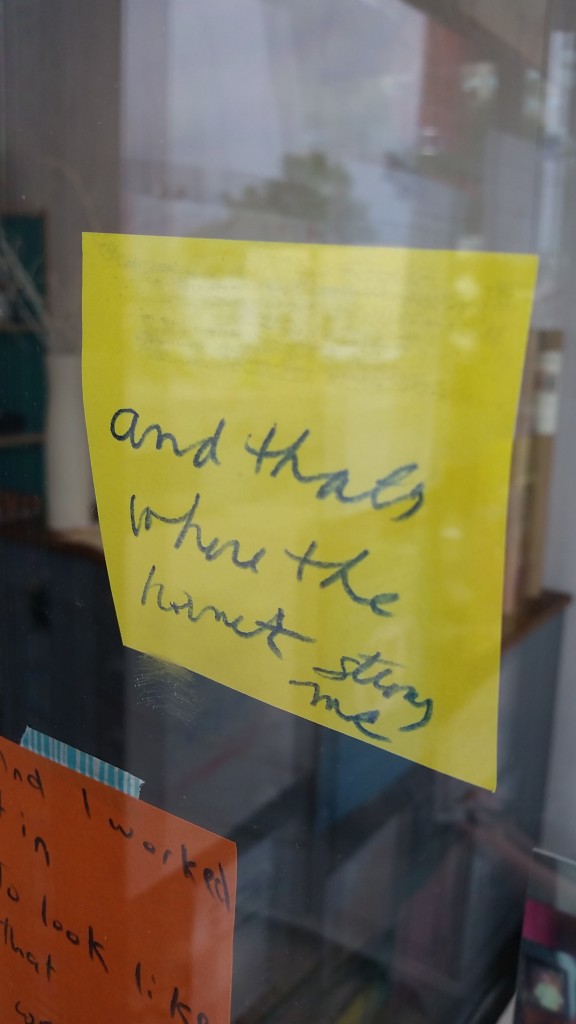 and thats
where the
hornet stung
me
And I worked
t in
to look like
that